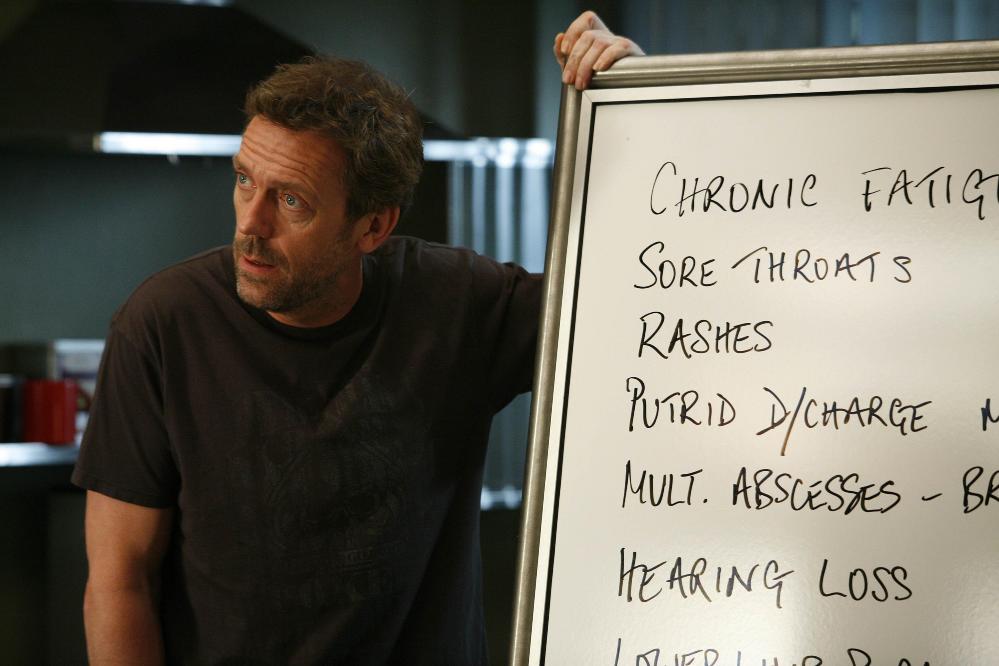 CHRONIC FATIGU
SORE THROATS
RASHES
PUTRID D/CHARGE M
MULT. ABSCESSES - BR
HEARING LOSS
LOWER